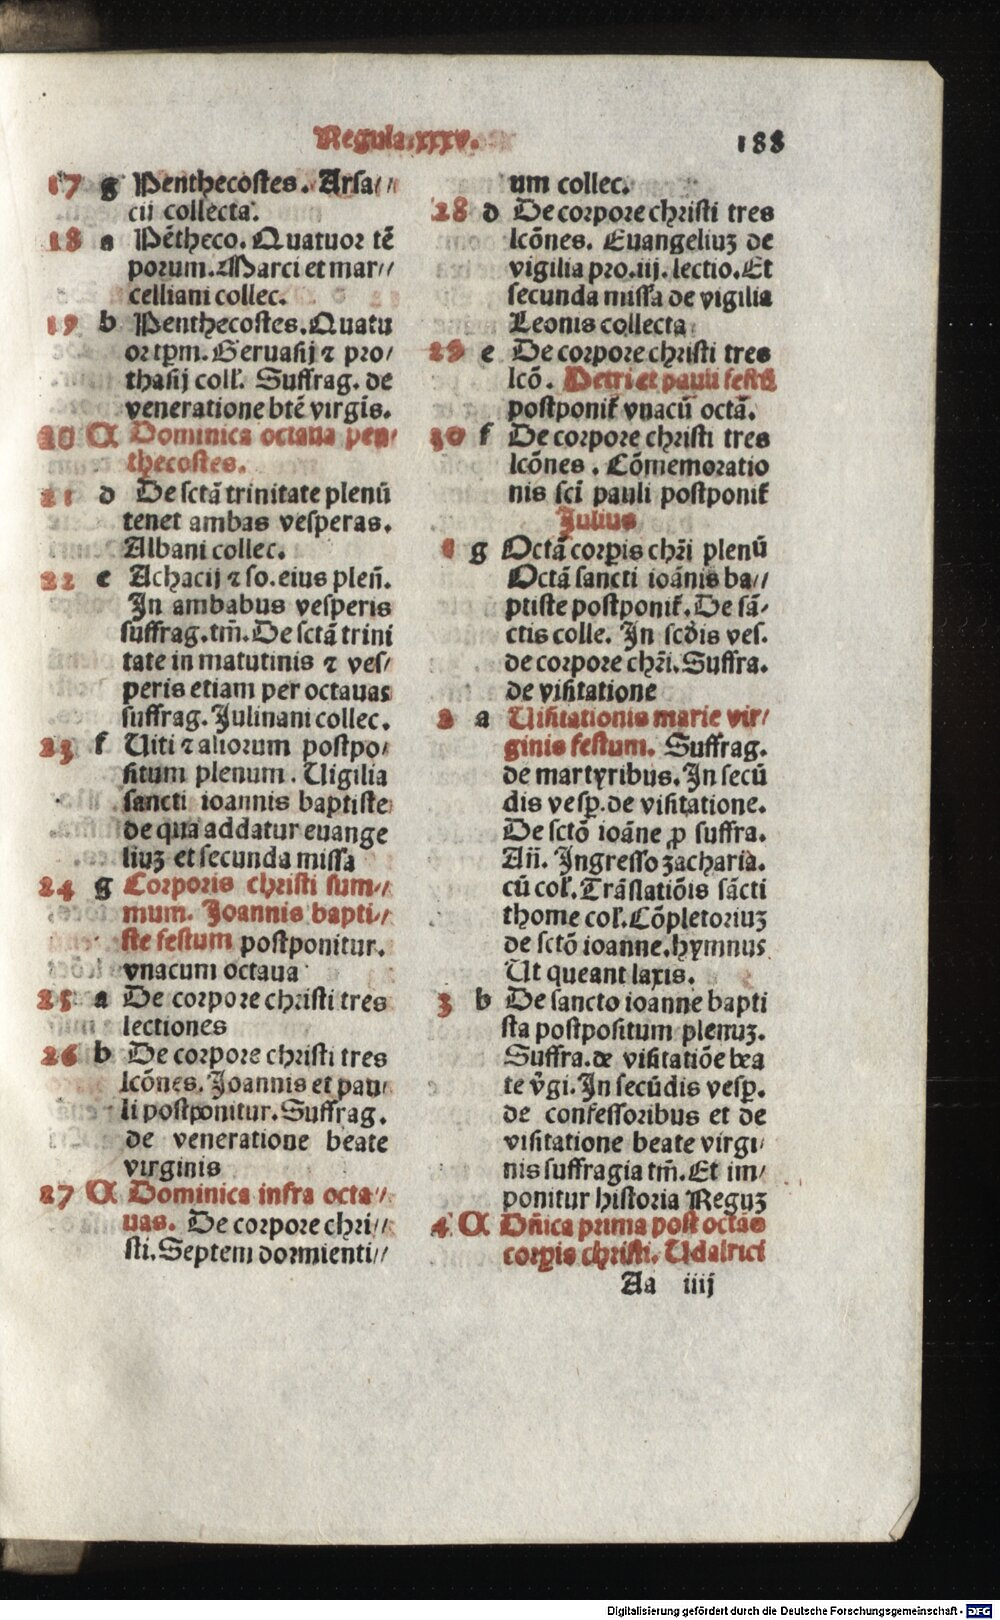 Regula.xxxv. 188
17 g Penthecostes. Arsa//
cii collecta.
18 a Pētheco. Quatuor tē
porum. Marci et mar//
celliani collec.
19 b Penthecostes. Quatu
or tp̄m. Geruasij ⁊ pro/
thasij coll'. Suffrag. de
veneratione btē virgīs.
20 A Dominica octaua pen/
thecostes.
21 d De sctā trinitate plenū
tenet ambas vesperas.
Albani collec.
22 e Achacij ⁊ so. eius pleñ.
In ambabus vesperis
suffrag. tm̄. De sctā trini
tate in matutinis ⁊ ves/
peris etiam per octauas
suffrag. Julinani collec.
23 f Uiti ⁊ aliorum postpo/
situm plenum. Uigilia
sancti ioannis baptiste
de qua addatur euange
liuꝫ et secunda missa
24 g Corporis christi sum//
mum. Joannis bapti//
ste festum postponitur.
vnacum octaua
25 a De corpore christi tres
lectiones
26 b De corpore christi tres
lcōnes. Joannis et pau/
li postponitur. Suffrag.
de veneratione beate
virginis
27 A Dominica infra octa//
uas. De corpore chri//
sti. Septem dormienti//
um collec.
28 d De corpore christi tres
lcōnes. Euangeliuꝫ de
vigilia pro. iij. lectio. Et
secunda missa de vigilia
Leonis collecta
29 e De corpore christi tres
lcō. Petri et pauli festū
postponit̄ vnacū octā.
30 f De corpore christi tres
lcōnes. Cōmemoratio
nis sci̅ pauli postponit̄
Julius
1 g Octā corꝑis chr̄i plenū
Octā sancti ioānis ba//
ptiste postponit̄. De sā/
ctis colle. In scd̄is ves.
de corpore chr̄i. Suffra.
de visitatione
2 a Uisitationis marie vir/
ginis festum. Suffrag.
de martyribus. In secū
dis vesꝑ. de visitatione.
De sctō ioāne ꝓ suffra.
Añ. Ingresso zacharia.
cū col'. Trāslatiōis sācti
thome col'. Cōpletoriuꝫ
de sctō ioanne. hymnus
Ut queant laxis.
3 b De sancto ioanne bapti
sta postpositum plenuꝫ.
Suffra. de visitatiōe bea
te v̄gi. In secūdis vesꝑ.
de confessoribus et de
visitatione beate virgi/
nis suffragia tm̄. Et im/
ponitur historia Reguꝫ
4 A Dn̄ica prima post octās
corꝑis christi. Udalrici
Aa iiij
Digitalisierung gefördert durch die Deutsche Forschungsgemeinschaft - DFG